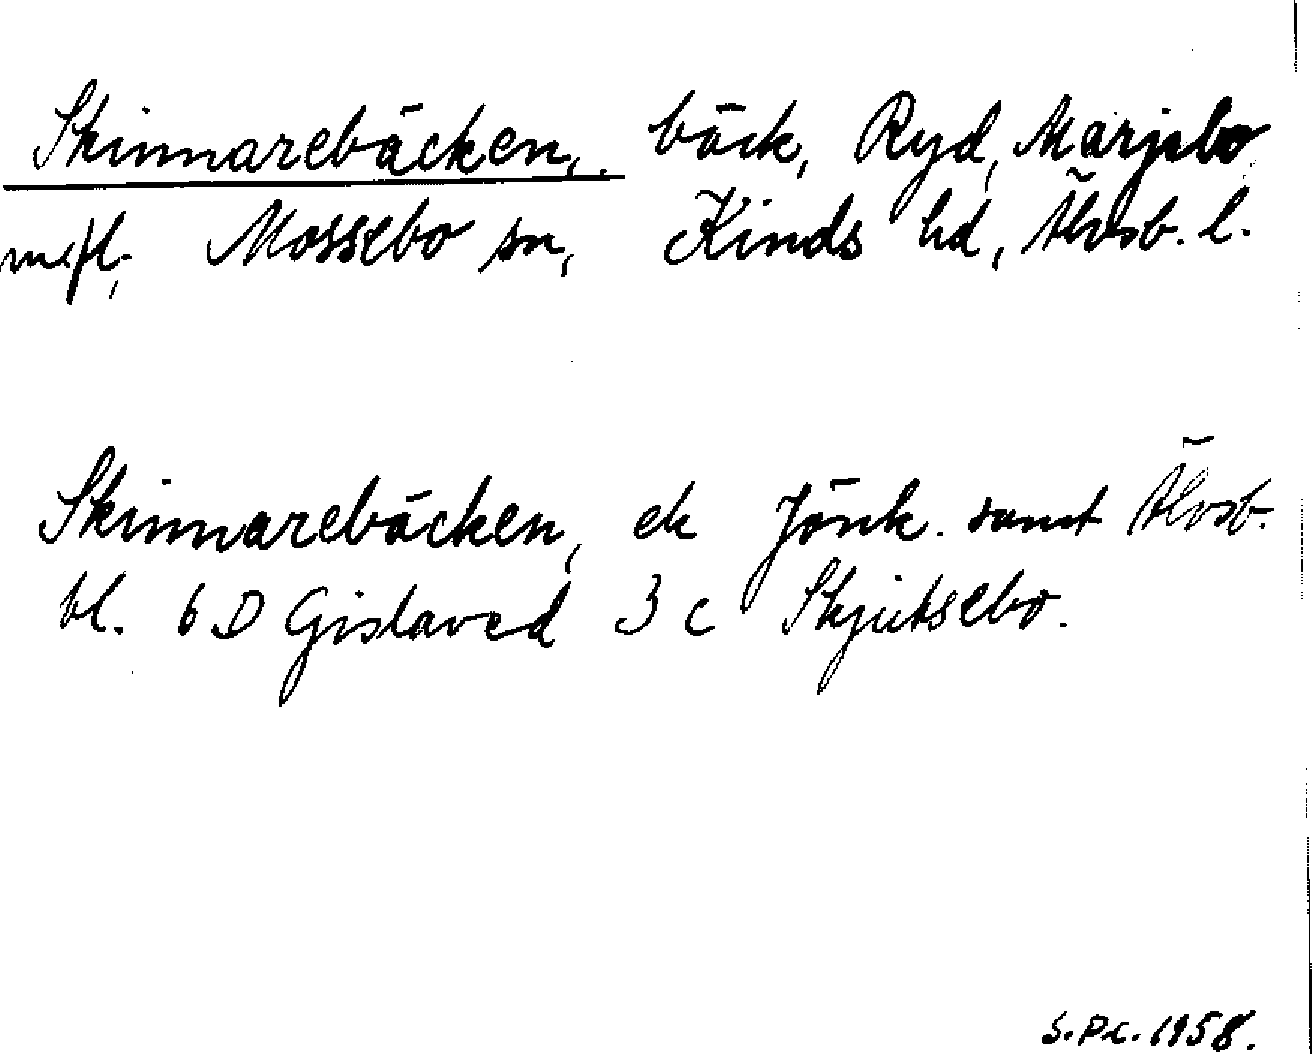 Skinnarebäcken, bäck, Ryd, Marjebo
m.fl., Mossebo sn, Kinds hd, Älvsb. l.
Skinnarebäcken, ek Jönk. samt Älvsb.
bl. 6 D Gislaved 3 c Skjutsebo.
S.P.C. 1958.